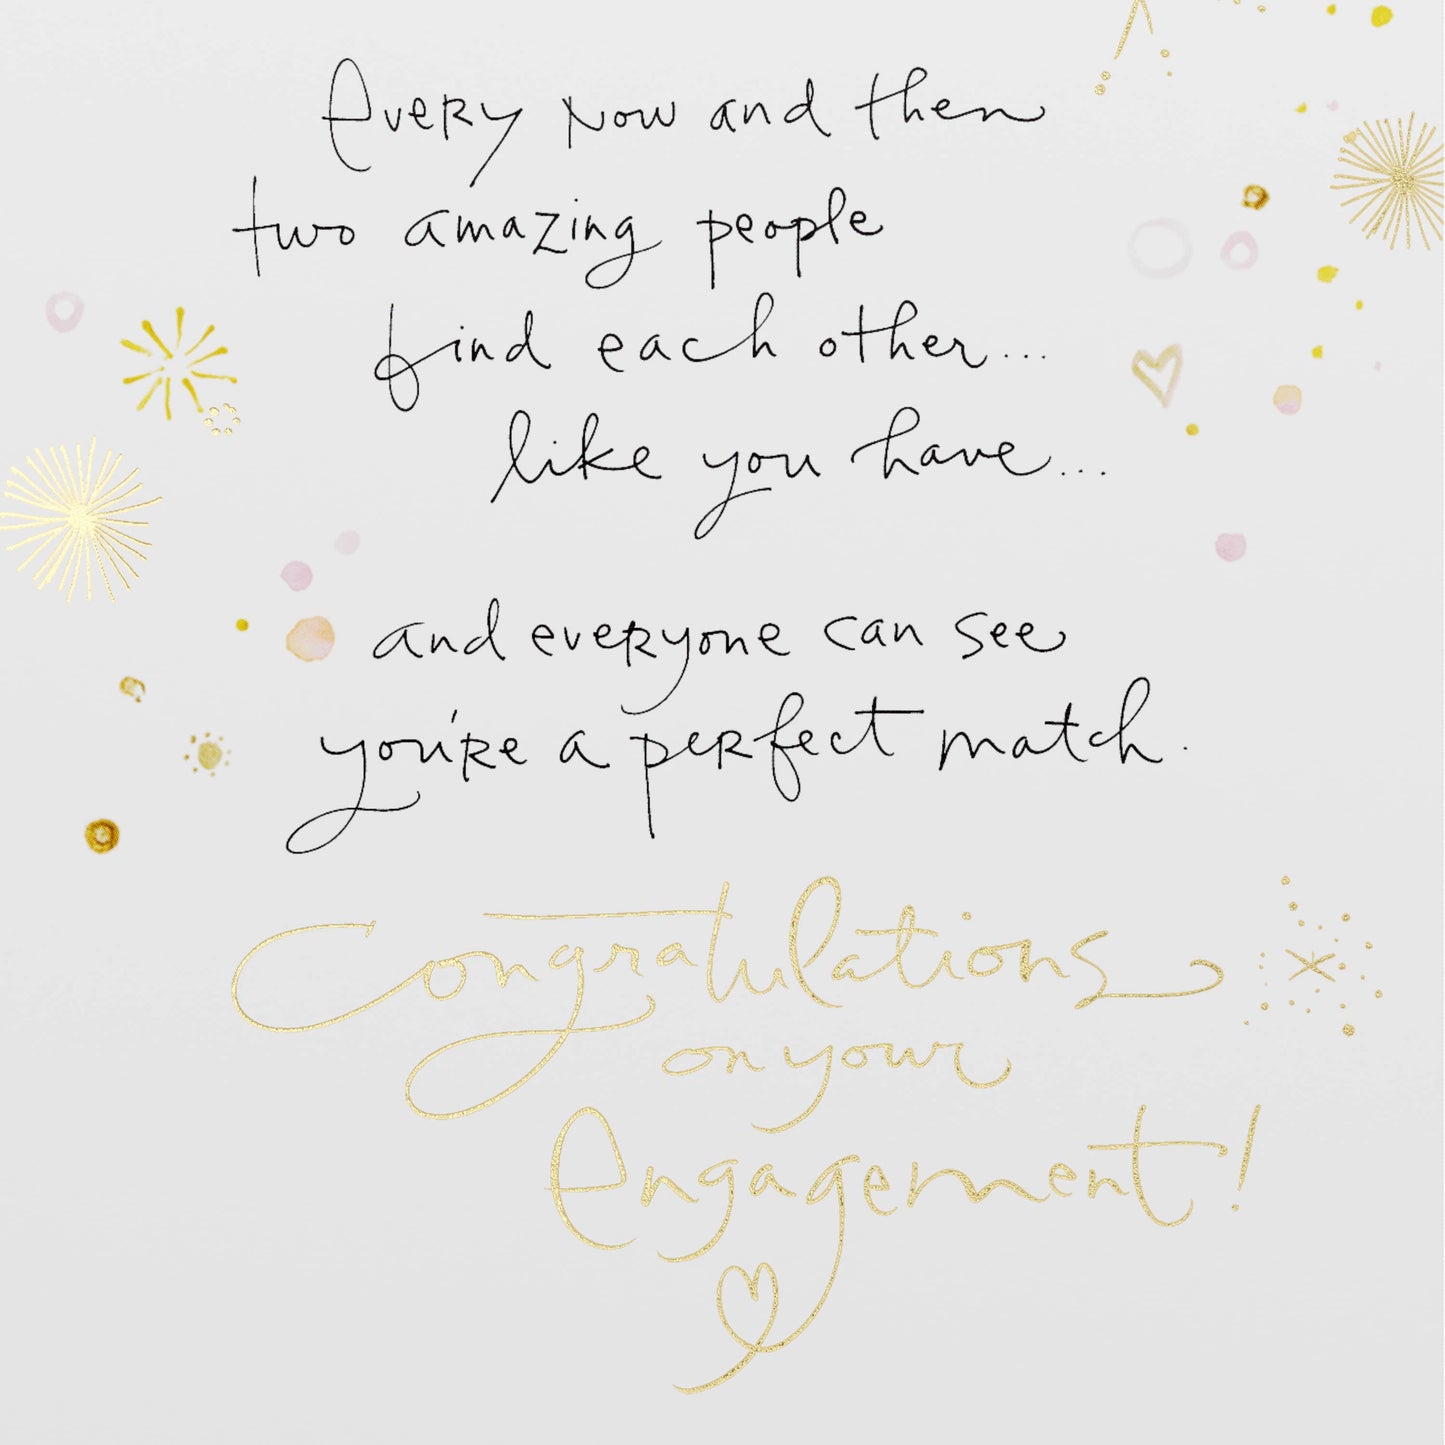 Every Now and then
two amazing people
find each other...
like you have...
and everyone can see
you're a perfect match.
Congratulations
on your
Engagement!